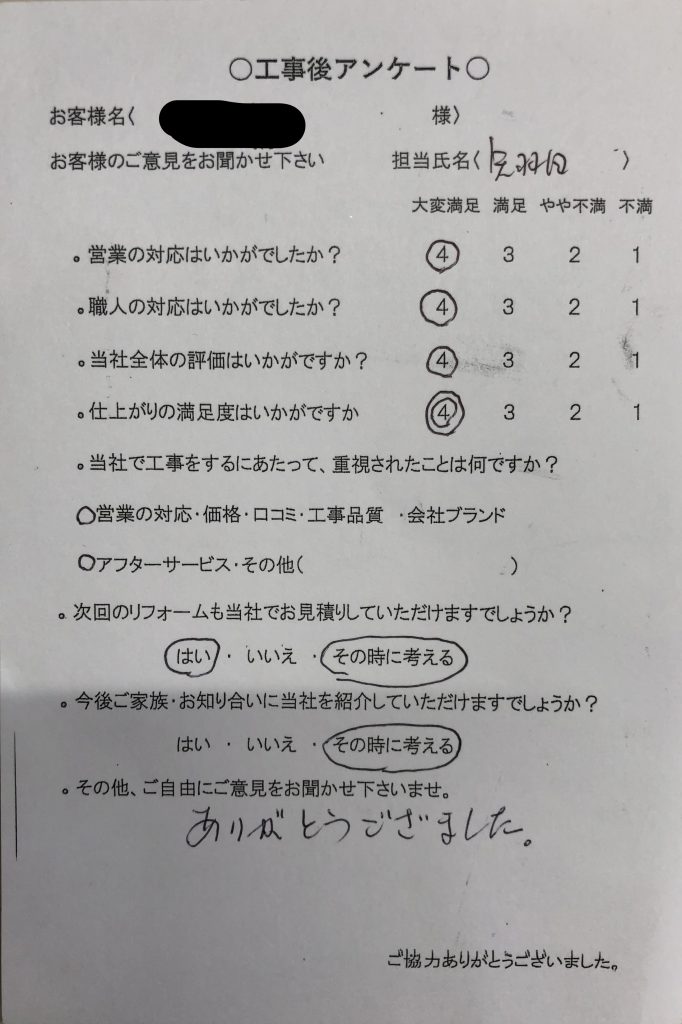 ○工事後アンケート○
お客様名( 様)
お客様のご意見をお聞かせ下さい 担当氏名( )
大変満足 満足 やや不満 不満
。営業の対応はいかがでしたか? 4 3 2 1
。職人の対応はいかがでしたか? 4 3 2 1
。当社全体の評価はいかがですか? 4 3 2 1
。仕上がりの満足度はいかがですか 4 3 2 1
。当社で工事をするにあたって、重視されたことは何ですか?
○営業の対応・価格・口コミ・工事品質 ・会社ブランド
○アフターサービス・その他( )
。次回のリフォームも当社でお見積りしていただけますでしょうか?
はい ・ いいえ ・ その時に考える
。今後ご家族・お知り合いに当社を紹介していただけますでしょうか?
はい ・ いいえ ・ その時に考える
。その他、ご自由にご意見をお聞かせ下さいませ。
ありがとうございました。
ご協力ありがとうございました。